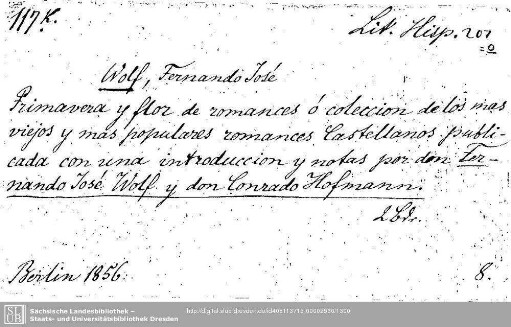 117 K.
Lit. Hisp. 201
=o
Wolf, Fernando José
Primavera y flor de romances ó coleccion de los mas
viejos y mas populares romances Castellanos publi-
cada con una introduccion y notas por don Fer-
nando José Wolf y don Conrado Hofmann.
2 Bde.
Berlin 1856. 8.
Sächsische Landesbibliothek –
Staats- und Universitätsbibliothek Dresden